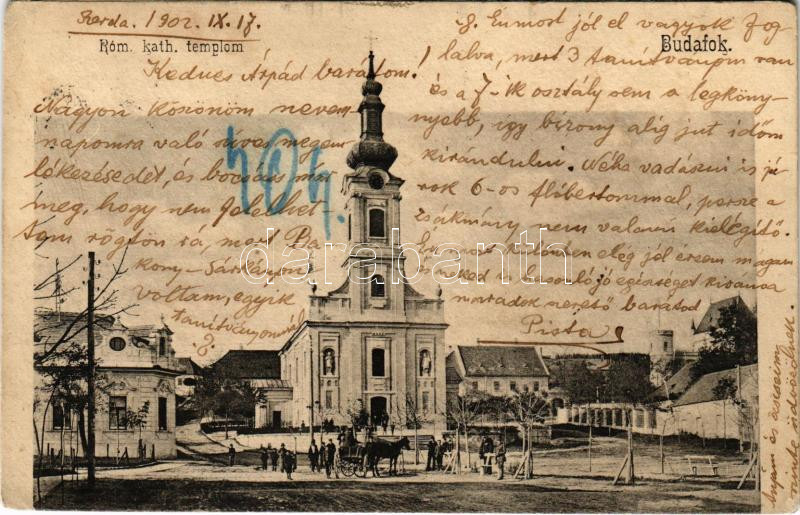 Szerda. 1902. IX. 17.
Róm. kath. templom
Budafok.
Kedves Árpád barátom!
Nagyon köszönöm nevem-
napomra való szives megem-
lékezésedet, és bocsáss már
meg, hogy nem felelhet-
tem rögtön rá, mert Ba-
kony-Sárkányon
voltam, egyik
tanítványomnál
S.
S. Én most jól el vagyok fog
lalva, mert 3 tanítványom van
és a 7-ik osztály sem a legköny-
nyebb, így bizony alig jut időm
kirándulni. Néha vadászni is já
rok 6-os flóbertommal, persze a
zsákmány nem valami kielégítő.
most különben elég jól érzem magam
s neked is hasonló jó egészséget kivánva
maradok szerető barátod
Pista
darabanth